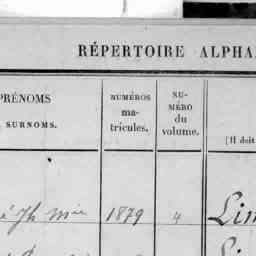 RÉPERTOIRE ALPHA
PRÉNOMS
SURNOMS.
NUMÉROS
ma-
tricules.
NU-
MÉRO
du
volume.
[Il doit
Jh 1879 4 Lim